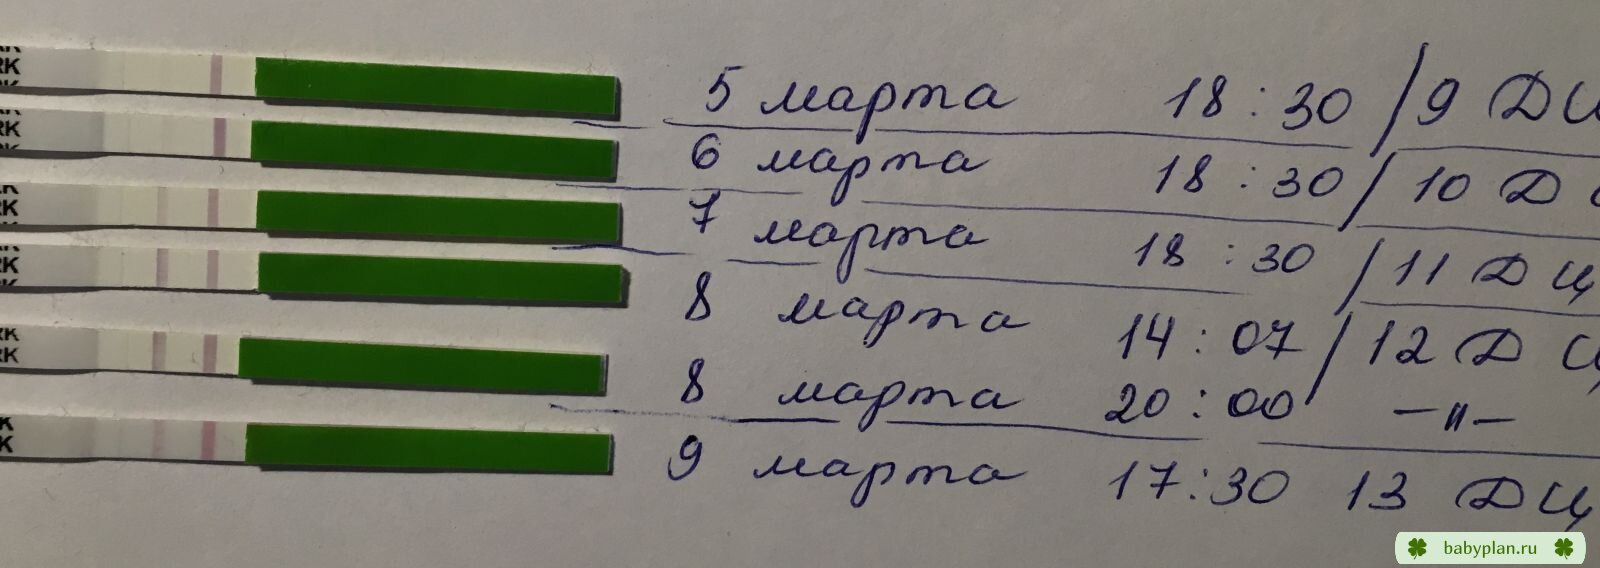 RK
5 марта 18:30 / 9 ДЦ
RK
6 марта 18:30 / 10 Д
RK
7 марта 18:30 / 11 ДЦ
RK
8 марта 14:07 / 12 ДЦ
RK
8 марта 20:00 —"—
K
9 марта 17:30 13 ДЦ
babyplan.ru